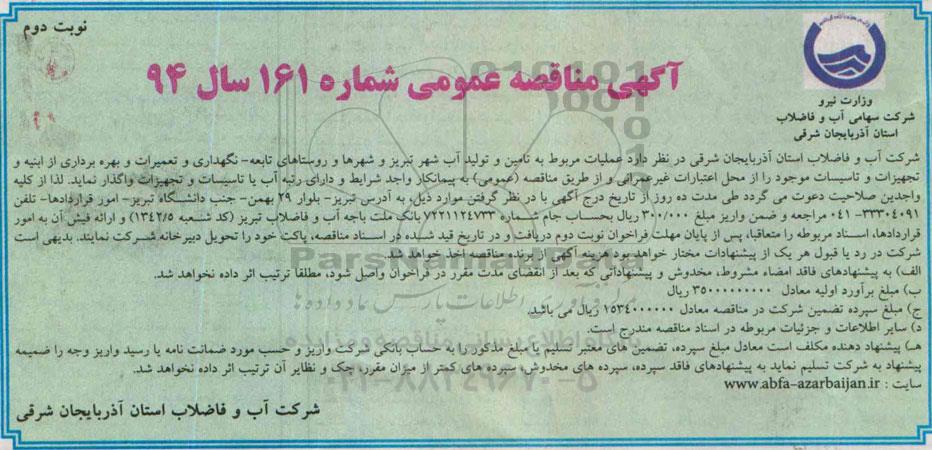 نوبت دوم
وزارت نیرو
شرکت سهامی آب و فاضلاب
استان آذربایجان شرقی
آگهی مناقصه عمومی شماره ۱۶۱ سال ۹۴
شرکت آب و فاضلاب استان آذربایجان شرقی در نظر دارد عملیات مربوط به تامین و تولید آب شهر تبریز و شهرها و روستاهای تابعه- نگهداری و تعمیرات و بهره برداری از ابنیه و
تجهیزات و تاسیسات موجود را از محل اعتبارات غیرعمرانی و از طریق مناقصه (عمومی) به پیمانکار واجد شرایط و دارای رتبه آب یا تاسیسات و تجهیزات واگذار نماید. لذا از کلیه
واجدین صلاحیت دعوت می گردد طی مدت ده روز از تاریخ درج آگهی با در نظر گرفتن موارد ذیل، به آدرس تبریز- بلوار ۲۹ بهمن- جنب دانشگاه تبریز- امور قراردادها- تلفن
۳۳۳۰۴۰۹۱-۰۴۱ مراجعه و ضمن واریز مبلغ ۳۰۰/۰۰۰ ریال بحساب جام شماره ۷۲۲۱۱۲۴۷۳۳ بانک ملت باجه آب و فاضلاب تبریز (کد شعبه ۱۳۴۲/۵) و ارائه فیش آن به امور
قراردادها، اسناد مربوطه را متعاقبا، پس از پایان مهلت فراخوان نوبت دوم دریافت و در تاریخ قید شده در اسناد مناقصه، پاکت خود را تحویل دبیرخانه شرکت نمایند. بدیهی است
شرکت در رد یا قبول هر یک از پیشنهادات مختار خواهد بود. هزینه آگهی از برنده مناقصه اخذ خواهد شد.
الف) به پیشنهادهای فاقد امضاء مشروط، مخدوش و پیشنهاداتی که بعد از انقضای مدت مقرر در فراخوان واصل شود، مطلقا ترتیب اثر داده نخواهد شد.
ب) مبلغ برآورد اولیه معادل ۳۵۰۰۰۰۰۰۰۰۰ ریال
ج) مبلغ سپرده تضمین شرکت در مناقصه معادل ۱۵۳۴۰۰۰۰۰۰ ریال می باشد.
د) سایر اطلاعات و جزئیات مربوطه در اسناد مناقصه مندرج است.
هـ) پیشنهاد دهنده مکلف است معادل مبلغ سپرده، تضمین های معتبر تسلیم یا مبلغ مذکور را به حساب بانکی شرکت واریز و حسب مورد ضمانت نامه یا رسید واریز وجه را ضمیمه
پیشنهاد به شرکت تسلیم نماید به پیشنهادهای فاقد سپرده، سپرده های مخدوش، سپرده های کمتر از میزان مقرر، چک و نظایر آن ترتیب اثر داده نخواهد شد.
سایت : www.abfa-azarbaijan.ir
شرکت آب و فاضلاب استان آذربایجان شرقی
ParsNamadData
۰۲۱-۸۸۳۴۹۶۷۰-۵